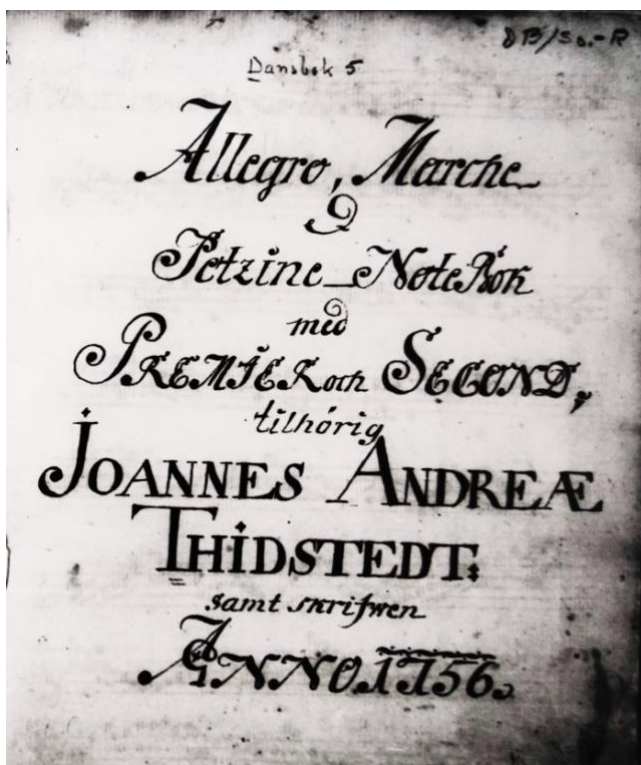 DB/So.-R
Dansbok 5
Allegro, Marche
Petzine-NoteBok
med
PREMIER och SECOND,
tilhörig
JOANNES ANDREÆ
THIDSTEDT:
samt skrifwen
ANNO.1756.